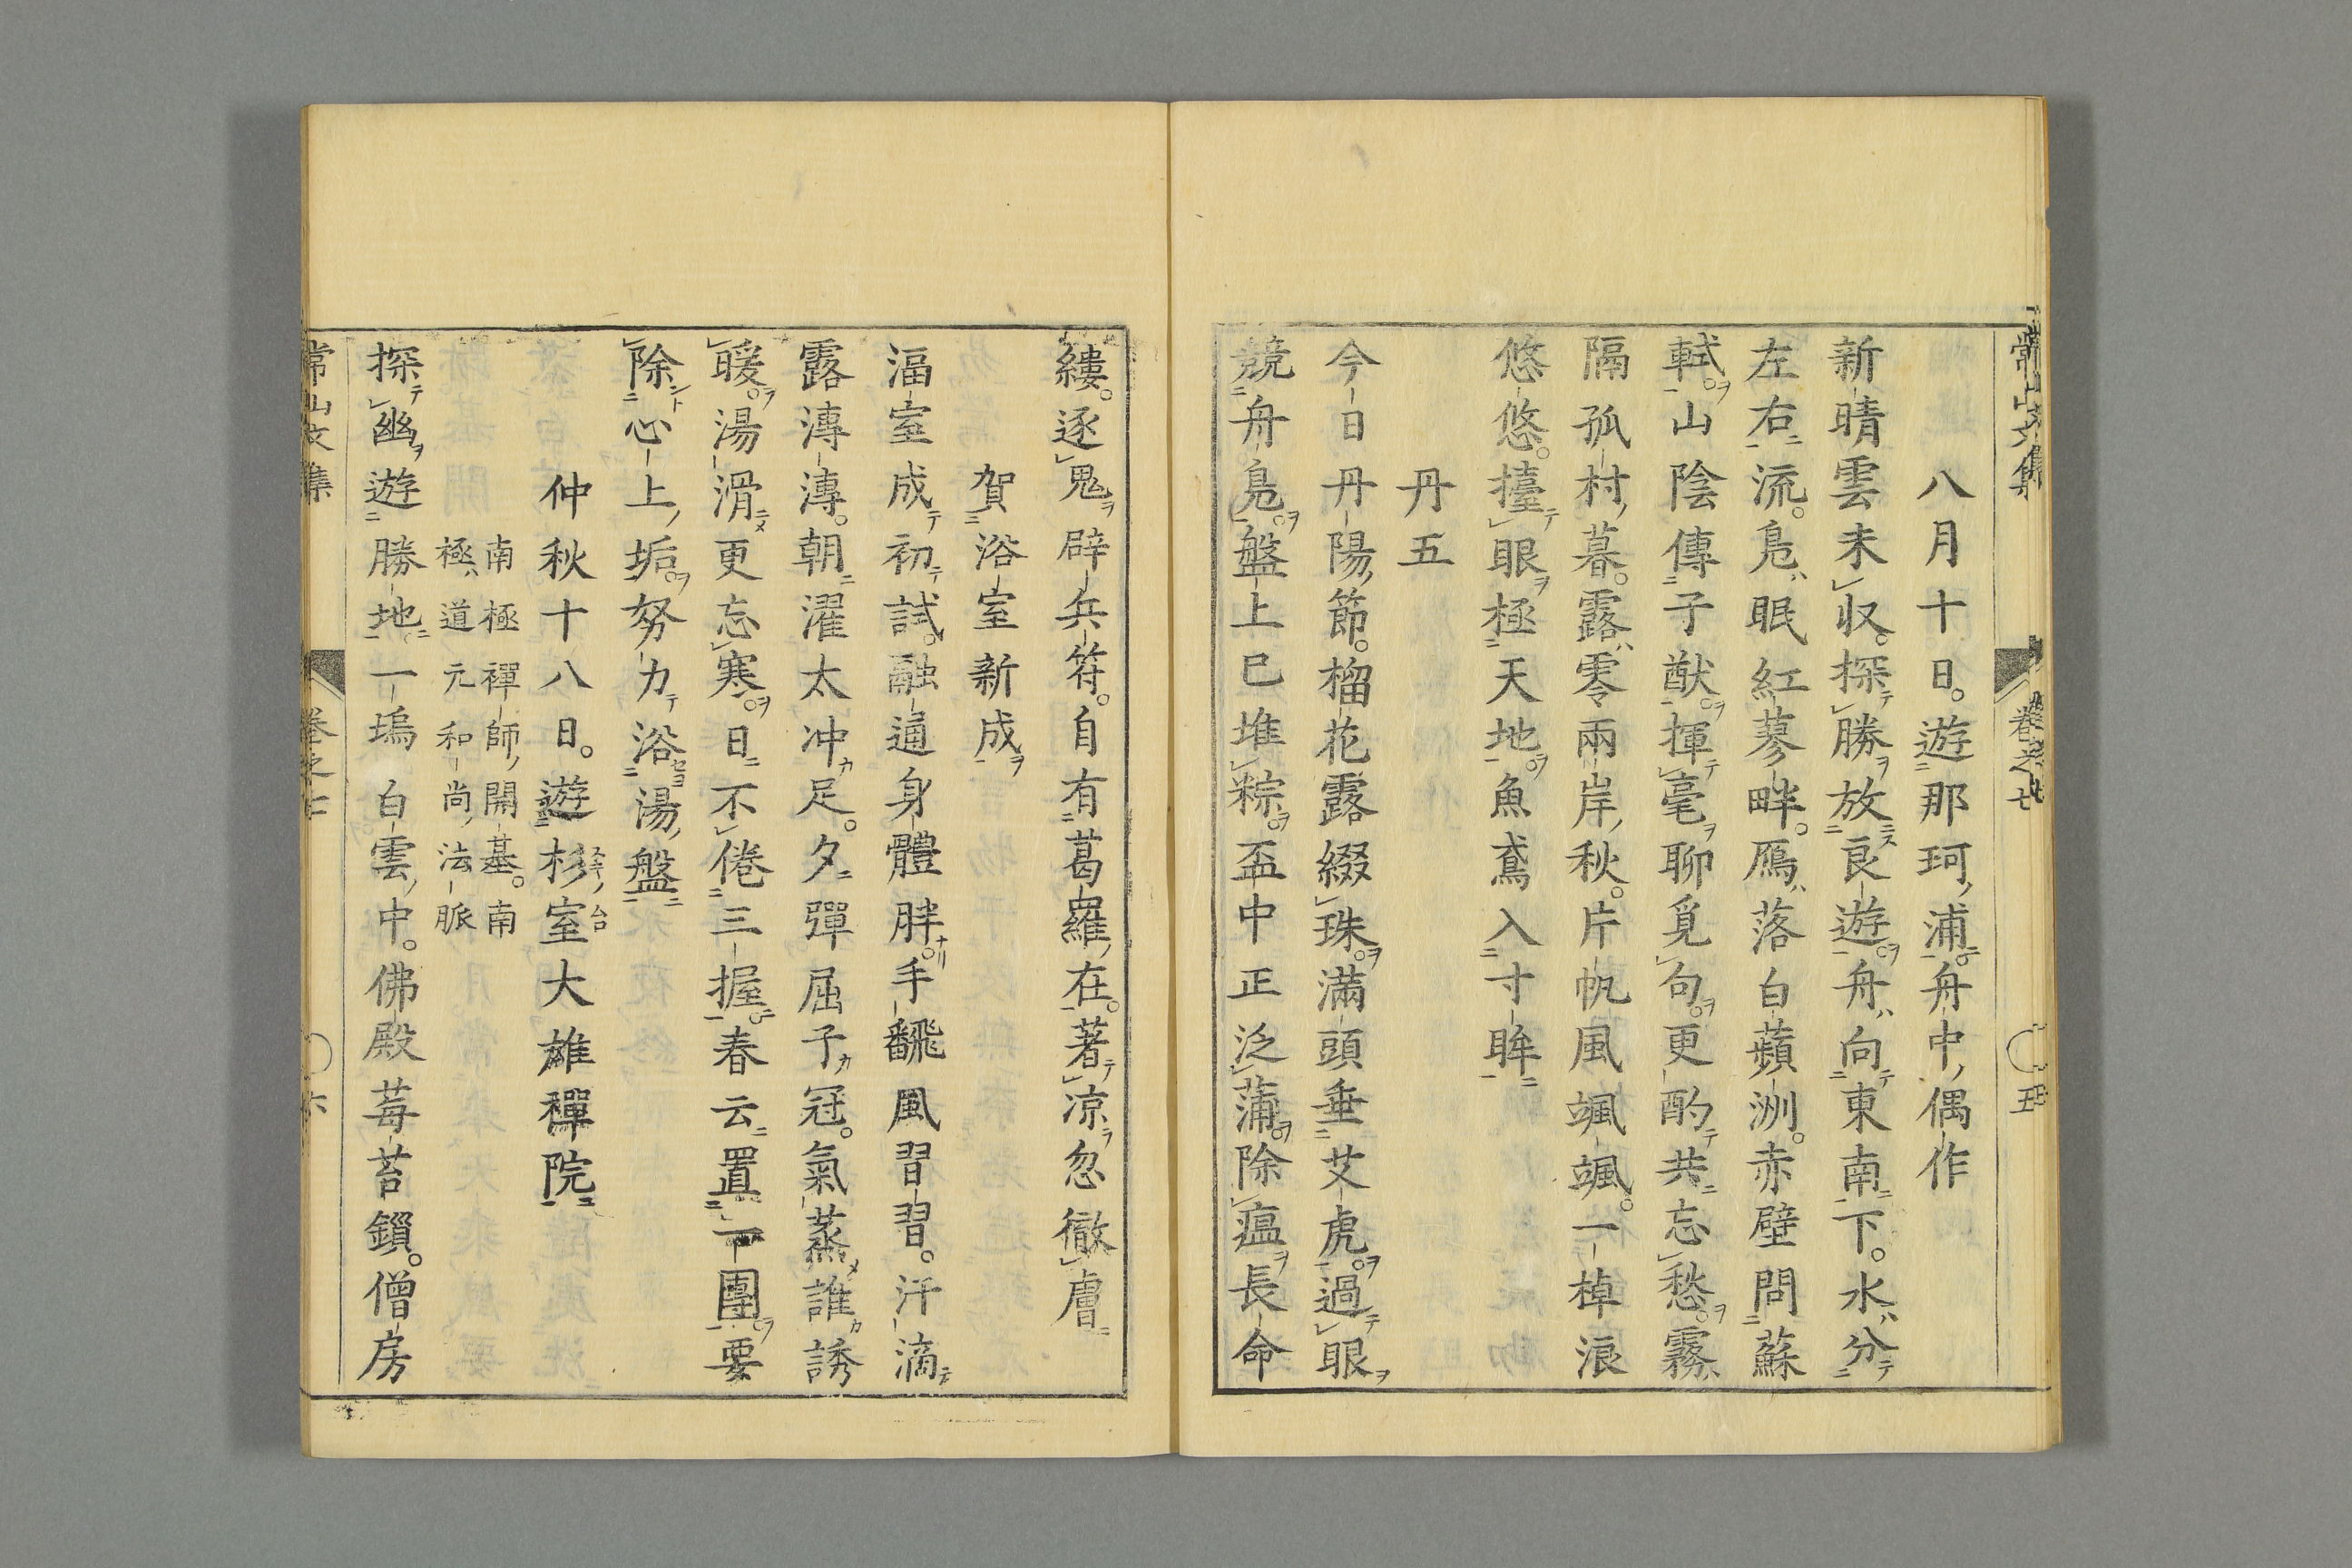 常山文集 卷之七 五
八月十日。遊那珂浦舟中偶作
新晴雲未收。探勝放良遊。舟向東南下。水分
左右流。鳧眠紅蓼畔。鴈落白蘋洲。赤壁問蘇
軾。山陰傳子猷。揮毫聊覓句。更酌共忘愁。霧
隔孤村暮。露零兩岸秋。片帆風颯颯。一棹浪
悠悠。擡眼極天地。魚鳶入寸眸
丹五
今日丹陽節。榴花露綴珠。滿頭垂艾虎。過眼
競舟鳧。盤上已堆粽。盃中正泛蒲。除瘟長命
縷。逐鬼辟兵符。自有葛羅在。著凉忽徹膚
賀浴室新成
湢室成初試。融通身體胖。手飜風習習。汗滴
露漙漙。朝濯太冲足。夕彈屈子冠。氣蒸誰誘
暖。湯滑更忘寒。日不倦三握。春云置一團。要
除心上垢。努力浴湯盤
仲秋十八日。遊杉室大雄禪院
南極禪師開基。南
極道元和尚法脈
探幽遊勝地。一塢白雲中。佛殿莓苔鎖。僧房
常山文集 卷之七 六